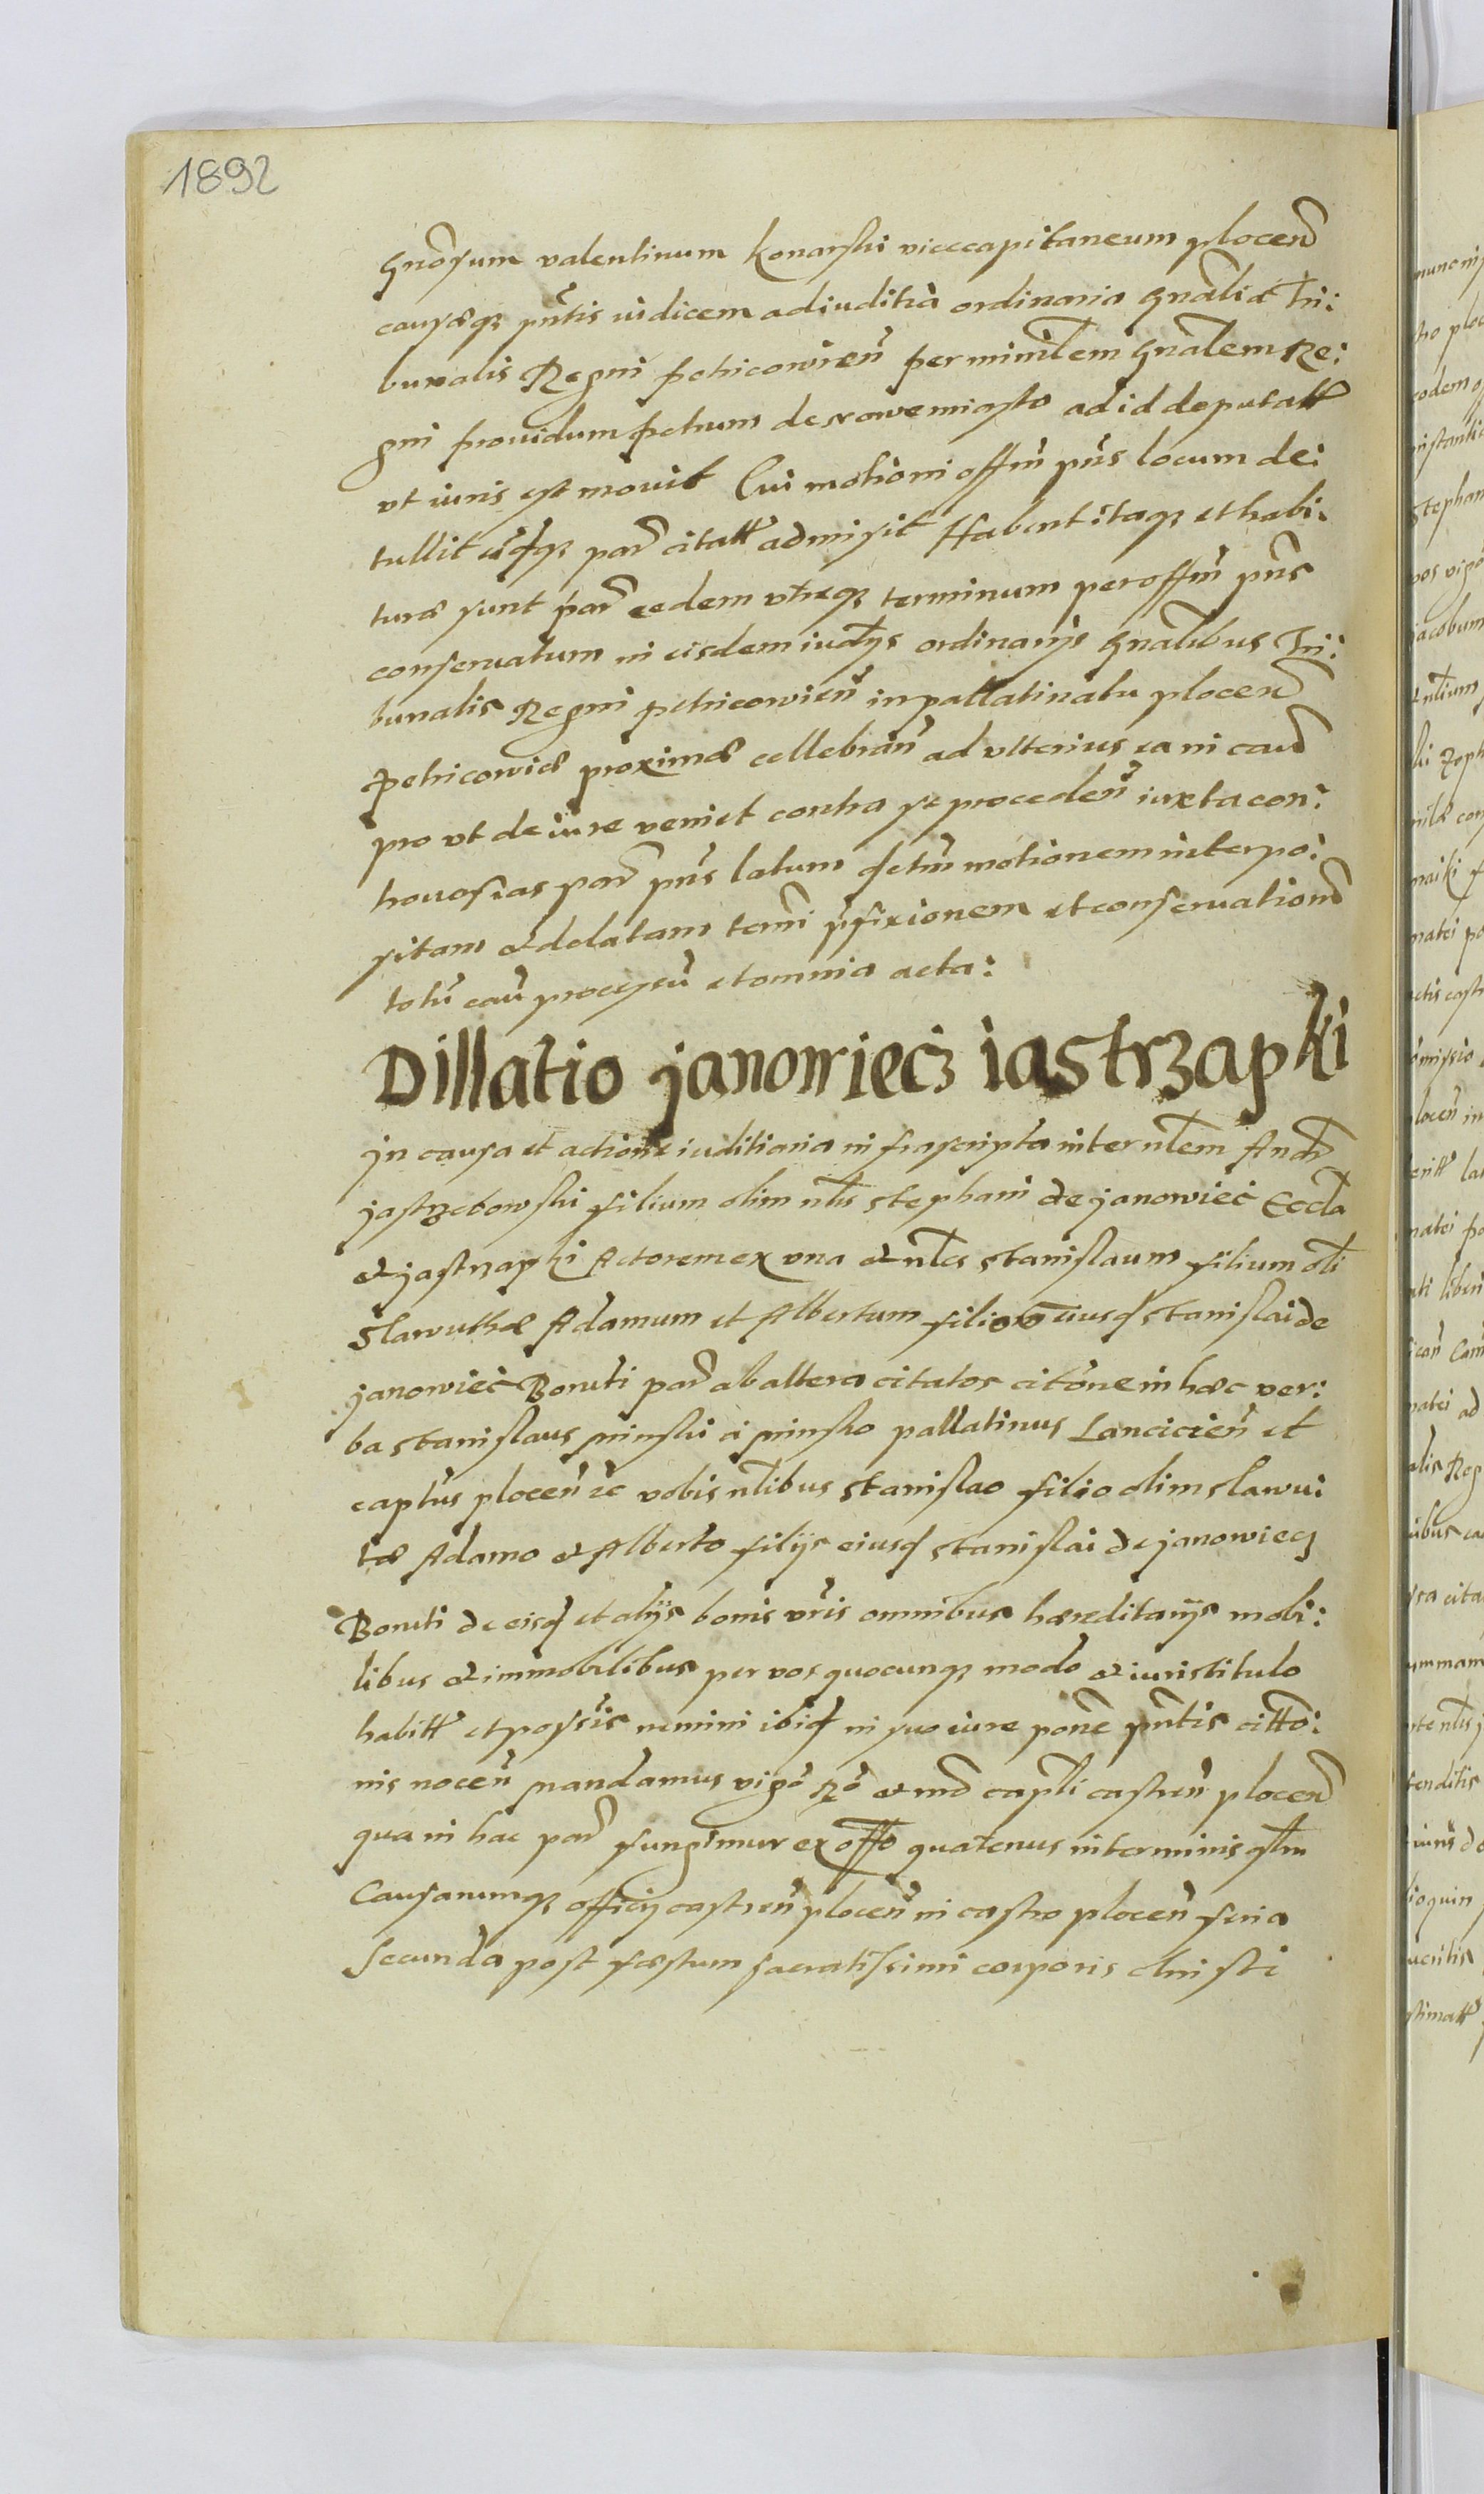 1892
Gnosum valentinum Konarski vicecapitaneum plocen
causæq pntis iudicem ad iuditia ordinaria Gnalia Tri:
bunalis Regni petricovien per ministlem Gnalem Re:
gni providum petrum de nowemiasto ad id deputatt
vt iuris est movit Cui motioni offm pns locum de:
tullit eidq par citatt admisit Habent itaq et habi:
turæ sunt par eedem vtreq terminum per offm pns
conservatum in eisdem iudtys ordinarijs Gnalibus Tri:
bunalis Regni petricovien in pallatinatu plocen
petricoviæ proximæ cellebran ad vlterius ea in cau
pro vt de iure veniet contra se proceden iuxta con:
trovosias par pns latum motionem interpo:
sitam & delatam termi pfixionem et conservationem
totu cau processu et omnia acta:
Dillatio janowiecz iastrzapki
jn causa et actione iuditiaria infrascripta inter nlem And
jastrzebowski filium olim nlis stephani de janowiec Eccla
& jastrzapki Actorem ex vna & nles stanislaum filium oli
Slawuthæ Adamum et Albertum filios eiusd stanislai de
janowiec Boruti par ab altera citatos citone in hæc ver:
ba stanislaus minski a minsko pallatinus Lancicien et
captus plocen zc vobis nlibus stanislao filio olim slawu:
tæ Adamo & Alberto filijs eiusd stanislai de janowiecz
Boruti de eisd et alijs bonis vris omnibus hæreditarijs mobi:
libus & immobilibus per vos quocunq modo & iuris titulo
habitt et possis nemini ibid in suo iure pone pntis citto:
nis nocen mandamus vigo Ro & md captli castren plocen
qua in hac par fungimur ex offo quatenus in terminis qlm
Causarumq officij castren plocen in castro plocen feria
secunda post fæstum sacratissimi corporis christi